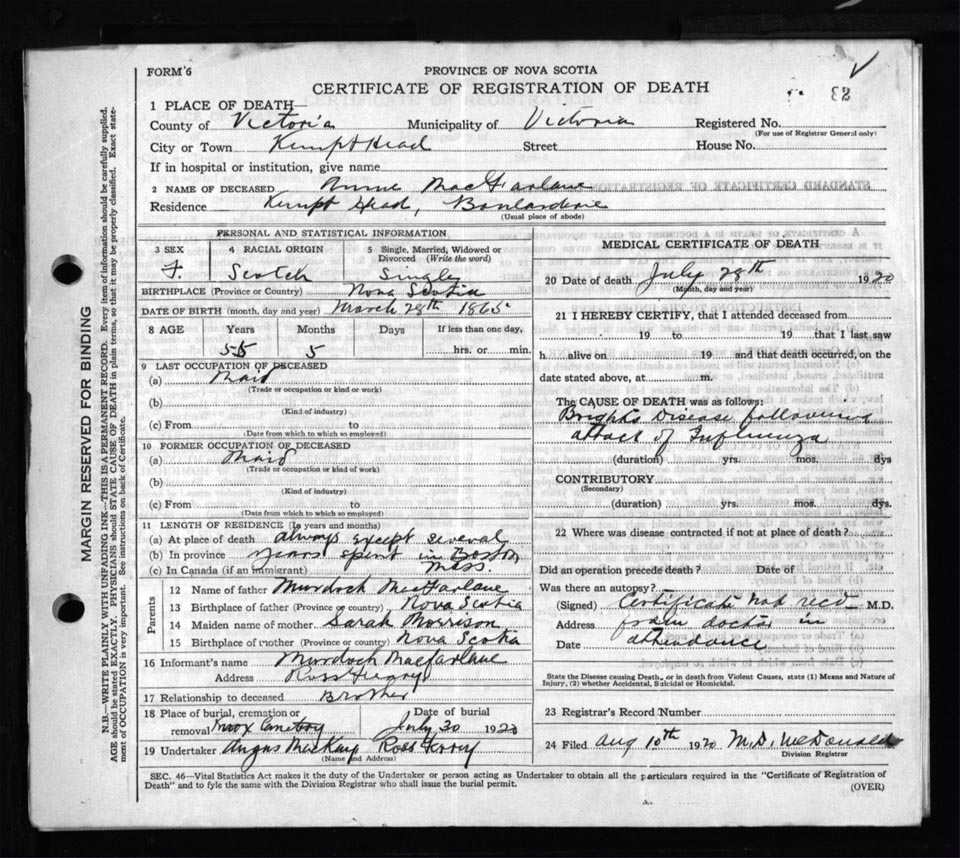 FORM 6
PROVINCE OF NOVA SCOTIA
CERTIFICATE OF REGISTRATION OF DEATH
1 PLACE OF DEATH—
County of Victoria Municipality of Victoria Registered No.
(For use of Registrar General only)
City or Town Kempt Head Street House No.
If in hospital or institution, give name
2 NAME OF DECEASED Annie MacFarlane
Residence Kempt Head, Boulardarie
(Usual place of abode)
PERSONAL AND STATISTICAL INFORMATION
3 SEX 4 RACIAL ORIGIN 5 Single, Married, Widowed or Divorced (Write the word)
F. Scotch Single
BIRTHPLACE (Province or Country) Nova Scotia
DATE OF BIRTH (month, day and year) March 28th 1865
8 AGE Years Months Days If less than one day,
55 5 hrs. or min.
9 LAST OCCUPATION OF DECEASED
(a) Maid
(Trade or occupation or kind or work)
(b)
(Kind of industry)
(c) From to
(Date from which to which so employed)
10 FORMER OCCUPATION OF DECEASED
(a) Maid
(Trade or occupation or kind of work)
(b)
(Kind of industry)
(c) From to
(Date from which to which so employed)
11 LENGTH OF RESIDENCE (In years and months)
(a) At place of death always except several
(b) In province years spent in Boston
(c) In Canada (if an immigrant) Mass.
Parents
12 Name of father Murdoch MacFarlane
13 Birthplace of father (Province or country) Nova Scotia
14 Maiden name of mother Sarah Morrison
15 Birthplace of mother (Province or country) Nova Scotia
16 Informant's name Murdoch Macfarlane
Address Ross Ferry
17 Relationship to deceased Brother
18 Place of burial, cremation or removal Knox Cemetery Date of burial July 30 1920
19 Undertaker Angus MacKay Ross Ferry
(Name and Address)
MEDICAL CERTIFICATE OF DEATH
20 Date of death July 28th 1920
(Month, day and year)
21 I HEREBY CERTIFY, that I attended deceased from
19 to 19 that I last saw
h alive on 19 and that death occurred, on the
date stated above, at m.
The CAUSE OF DEATH was as follows:
Brights Disease following
attack of Influenza
(duration) yrs. mos. dys
CONTRIBUTORY
(Secondary)
(duration) yrs. mos. dys.
22 Where was disease contracted if not at place of death?
Did an operation precede death? Date of
Was there an autopsy?
(Signed) Certificate not recd M.D.
Address from doctor in
Date attendance
State the Disease causing Death, or in death from Violent Causes, state (1) Means and Nature of
Injury, (2) whether Accidental, Suicidal or Homicidal.
23 Registrar's Record Number
24 Filed Aug 10th 1920 M.D. McDonald
Division Registrar
SEC. 46—Vital Statistics Act makes it the duty of the Undertaker or person acting as Undertaker to obtain all the particulars required in the "Certificate of Registration of
Death" and to fyle the same with the Division Registrar who shall issue the burial permit.
(OVER)
MARGIN RESERVED FOR BINDING
N.B.—WRITE PLAINLY WITH UNFADING INK—THIS IS A PERMANENT RECORD. Every item of information should be carefully supplied.
AGE should be stated EXACTLY. PHYSICIANS should STATE CAUSE OF DEATH in plain terms, so that it may be properly classified. Exact state-
ment of OCCUPATION is very important. See instructions on back of Certificate.